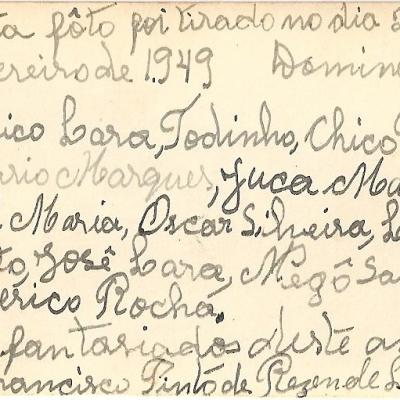 ta fôto foi tirado no dia
ereiro de 1949 Domin
ico Lara, Todinho, Chico
ario Marques, Juca Ma
Maria, Oscar Silveira, L
to, José Lara, Megô Sa
erico Rocha.
fantasiados deste a
rancisco Pinto de Rezende L